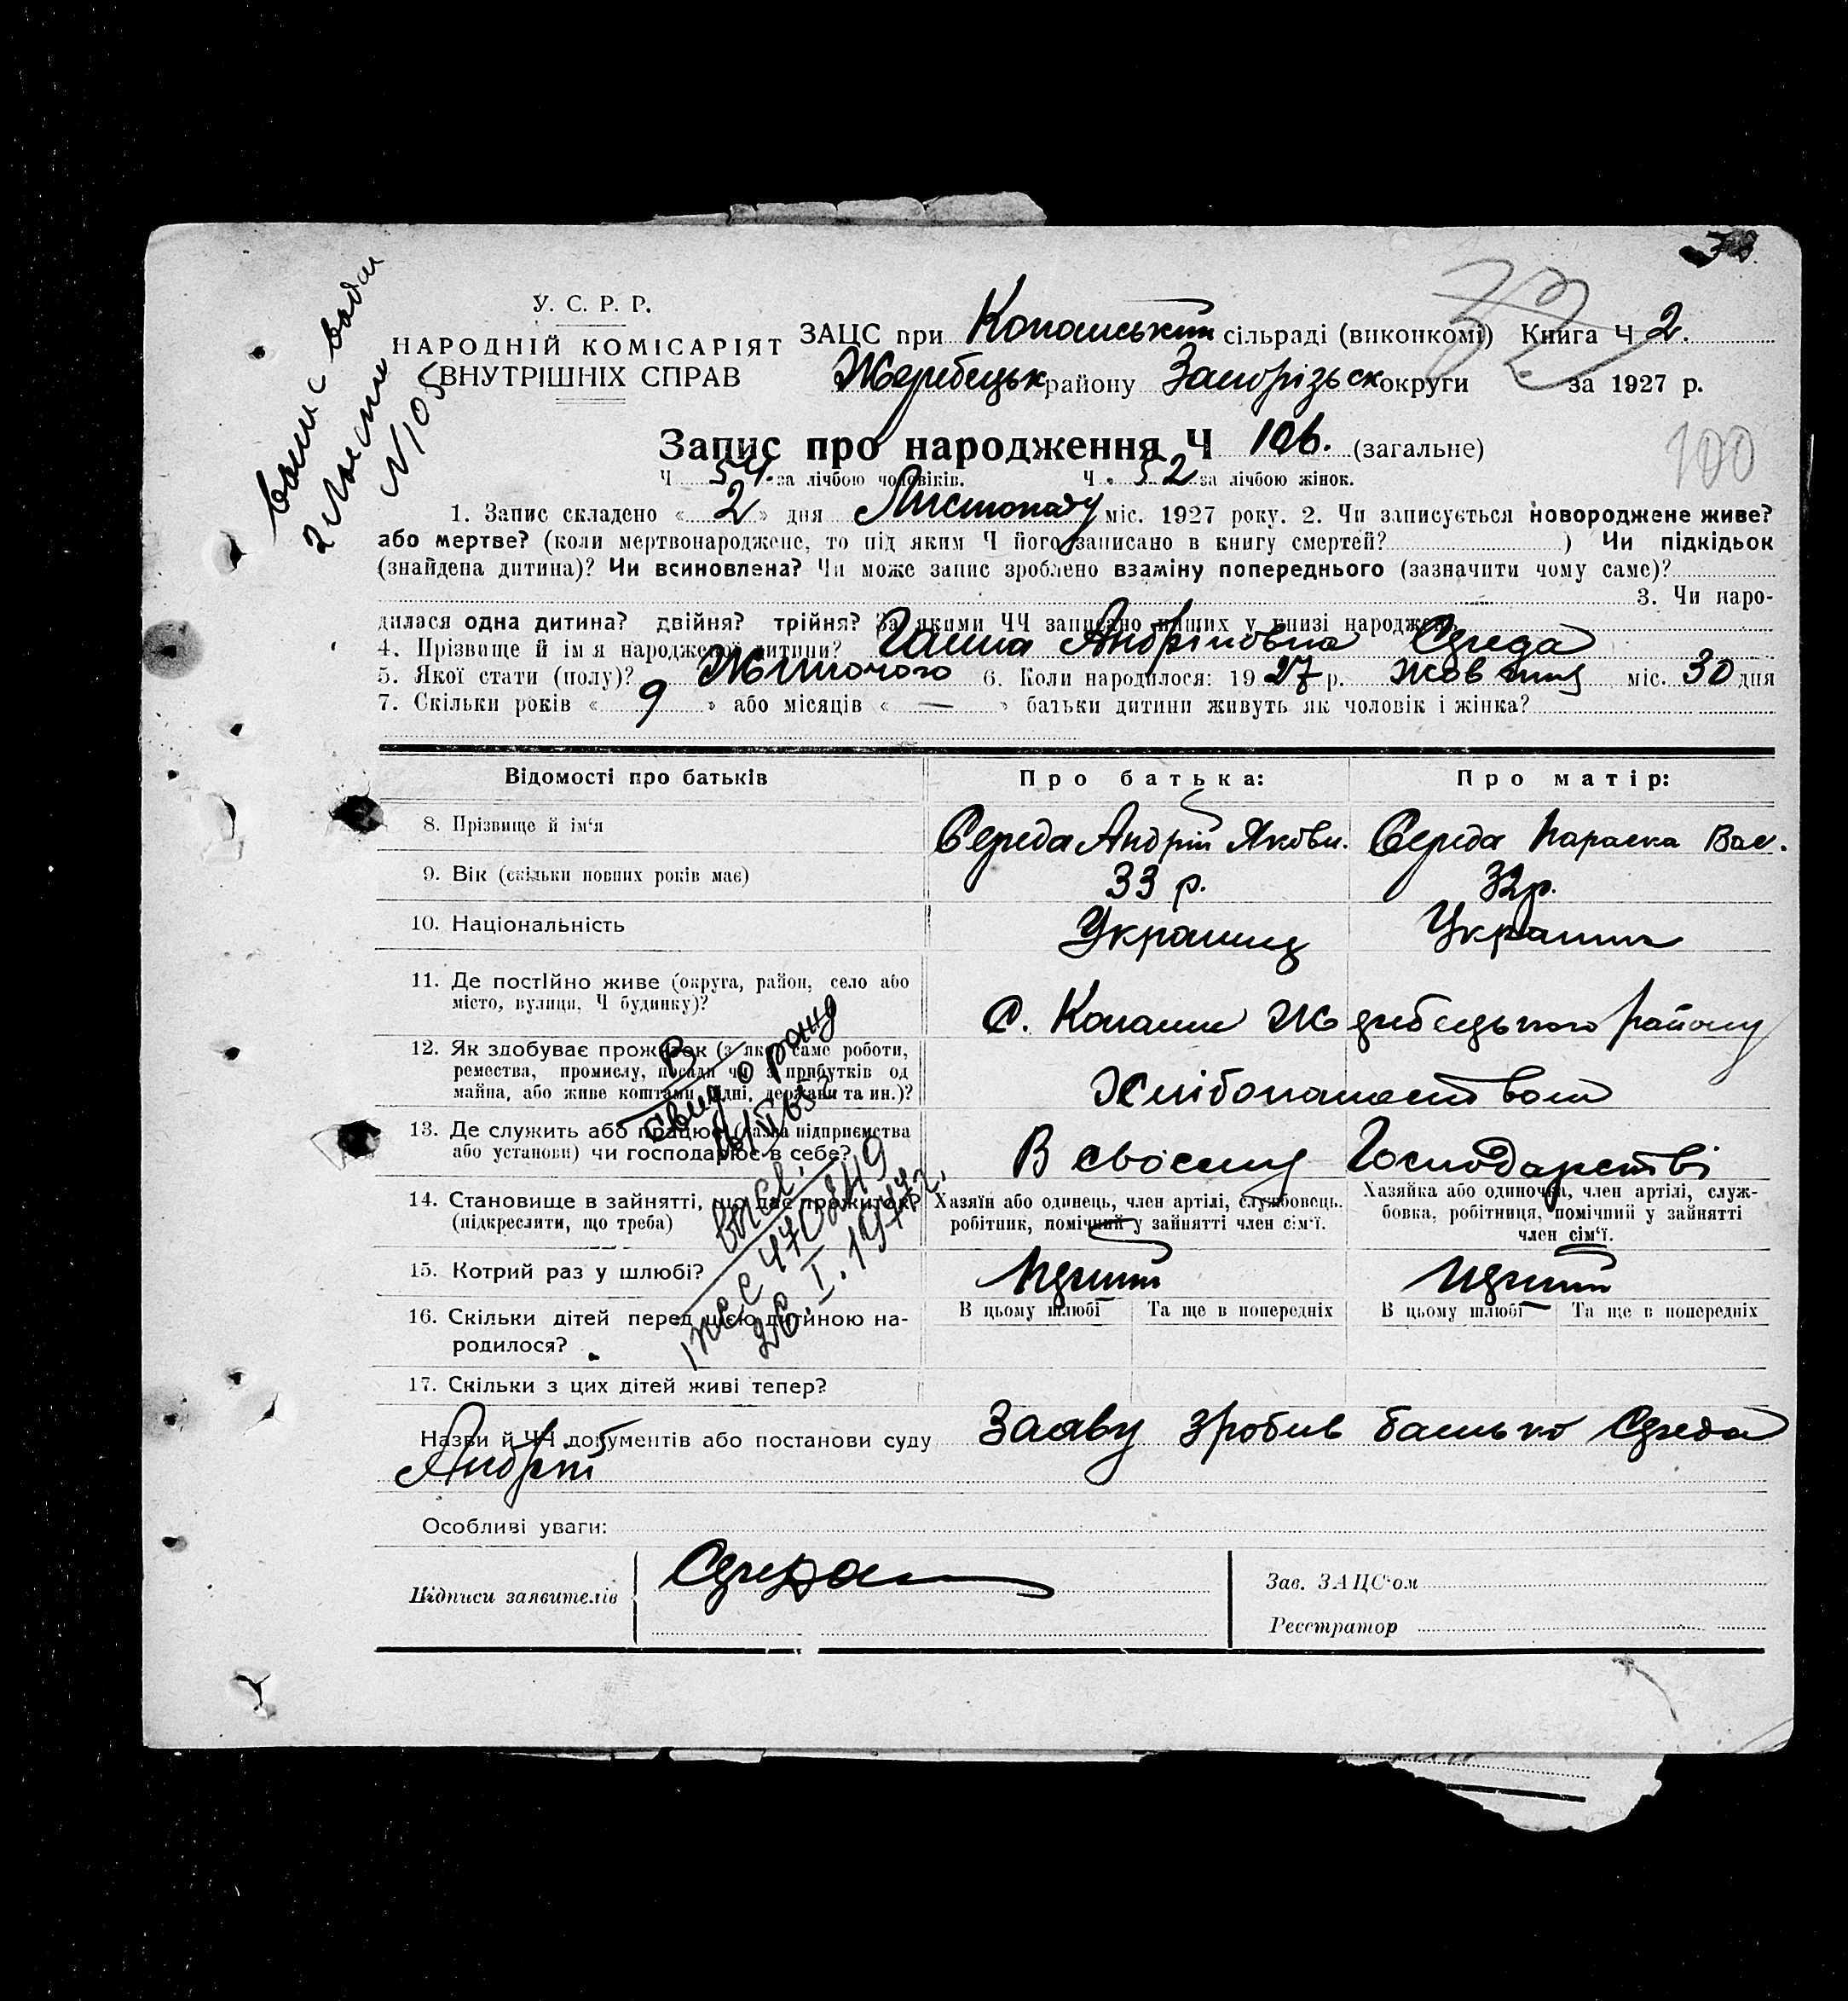 У. С. Р. Р.
НАРОДНІЙ КОМІСАРІЯТ
ВНУТРІШНІХ СПРАВ
ЗАЦС при Копанський сільраді (виконкомі) Книга Ч 2.
Жеребецьк району Запорізьск округи за 1927 р.
32
100
Випис видан
2 Листоп
N 105
Запис про народження Ч 106. (загальне)
Ч 54. за лічбою чоловіків. Ч 52 за лічбою жінок.
1. Запис складено « 2 » дня Листопаду міс. 1927 року. 2. Чи записується новороджене живе?
або мертве? (коли мертвонароджене, то під яким Ч його записано в книгу смертей? ) Чи підкідьок
(знайдена дитина)? Чи всиновлена? Чи може запис зроблено взаміну попереднього (зазначити чому саме)?
3. Чи наро-
дилася одна дитина? двійня? трійня? За якими ЧЧ записано инших у книзі народжень
4. Прізвище й ім я народженої дитини? Ганна Андріїовна Середа
5. Якої стати (полу)? Жиночого 6. Коли народилося: 1927 р. жовтня міс. 30 дня
7. Скільки років « 9 » або місяців « — » батьки дитини живуть як чоловік і жінка?
Відомості про батьків Про батька: Про матір:
8. Прізвище й ім‘я Середа Андрій Якови. Середа Параска Вас.
9. Вік (скільки повних років має) 33 р. 32 р.
10. Національність Украинц Украинк
11. Де постійно живе (округа, район, село або
місто, вулиця, Ч будинку)? С. Копани Жеребецького району
12. Як здобуває прожиток (з якої саме роботи,
ремества, промислу, посади чи з прибутків од
майна, або живе коштами рідні, держави та ин.)? Хлібопашеством
13. Де служить або працює (назва підприємства
або установи) чи господарює в себе? В своєму Господарстві
14. Становище в зайнятті, що дає прожиток?
(підкреслити, що треба)
Хазяїн або одинець, член артілі, службовець,
робітник, помічний у зайнятті член сім‘ї.
Хазяйка або одиночка, член артілі, служ-
бовка, робітниця, помічний у зайнятті
член сім‘ї.
15. Котрий раз у шлюбі? Первий Первий
16. Скільки дітей перед цією дитиною на-
родилося?
В цьому шлюбі Та ще в попередніх В цьому шлюбі Та ще в попередніх
17. Скільки з цих дітей живі тепер?
Назви й ЧЧ документів або постанови суду Заяву зробив батько Середа
Андрій
Особливі уваги:
Підписи заявителів Середа
Зав. ЗАЦС‘ом
Реєстратор